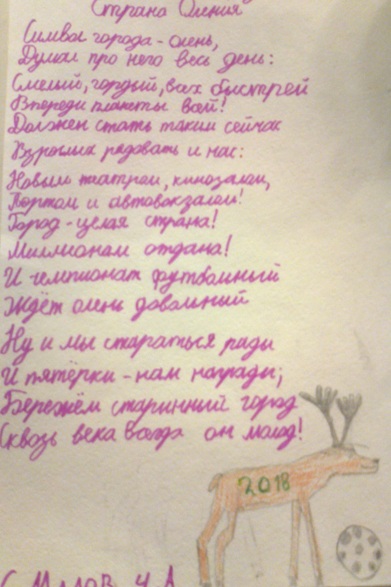 Страна Оления
Символ города - олень,
Думал про него весь день:
Смелый, гордый, всех быстрей
Впереди планеты всей!
Должен стать таким сейчас
Взрослых радовать и нас:
Новым театром, кинозалом,
Портом и автовокзалом!
Город - целая страна!
Миллионам отдана!
И чемпионат футбольный
Ждёт олень довольный
Ну и мы стараться рады
И пятёрки - нам награды;
Бережём старинный город
Сквозь века всегда он молод!
2018
4 А